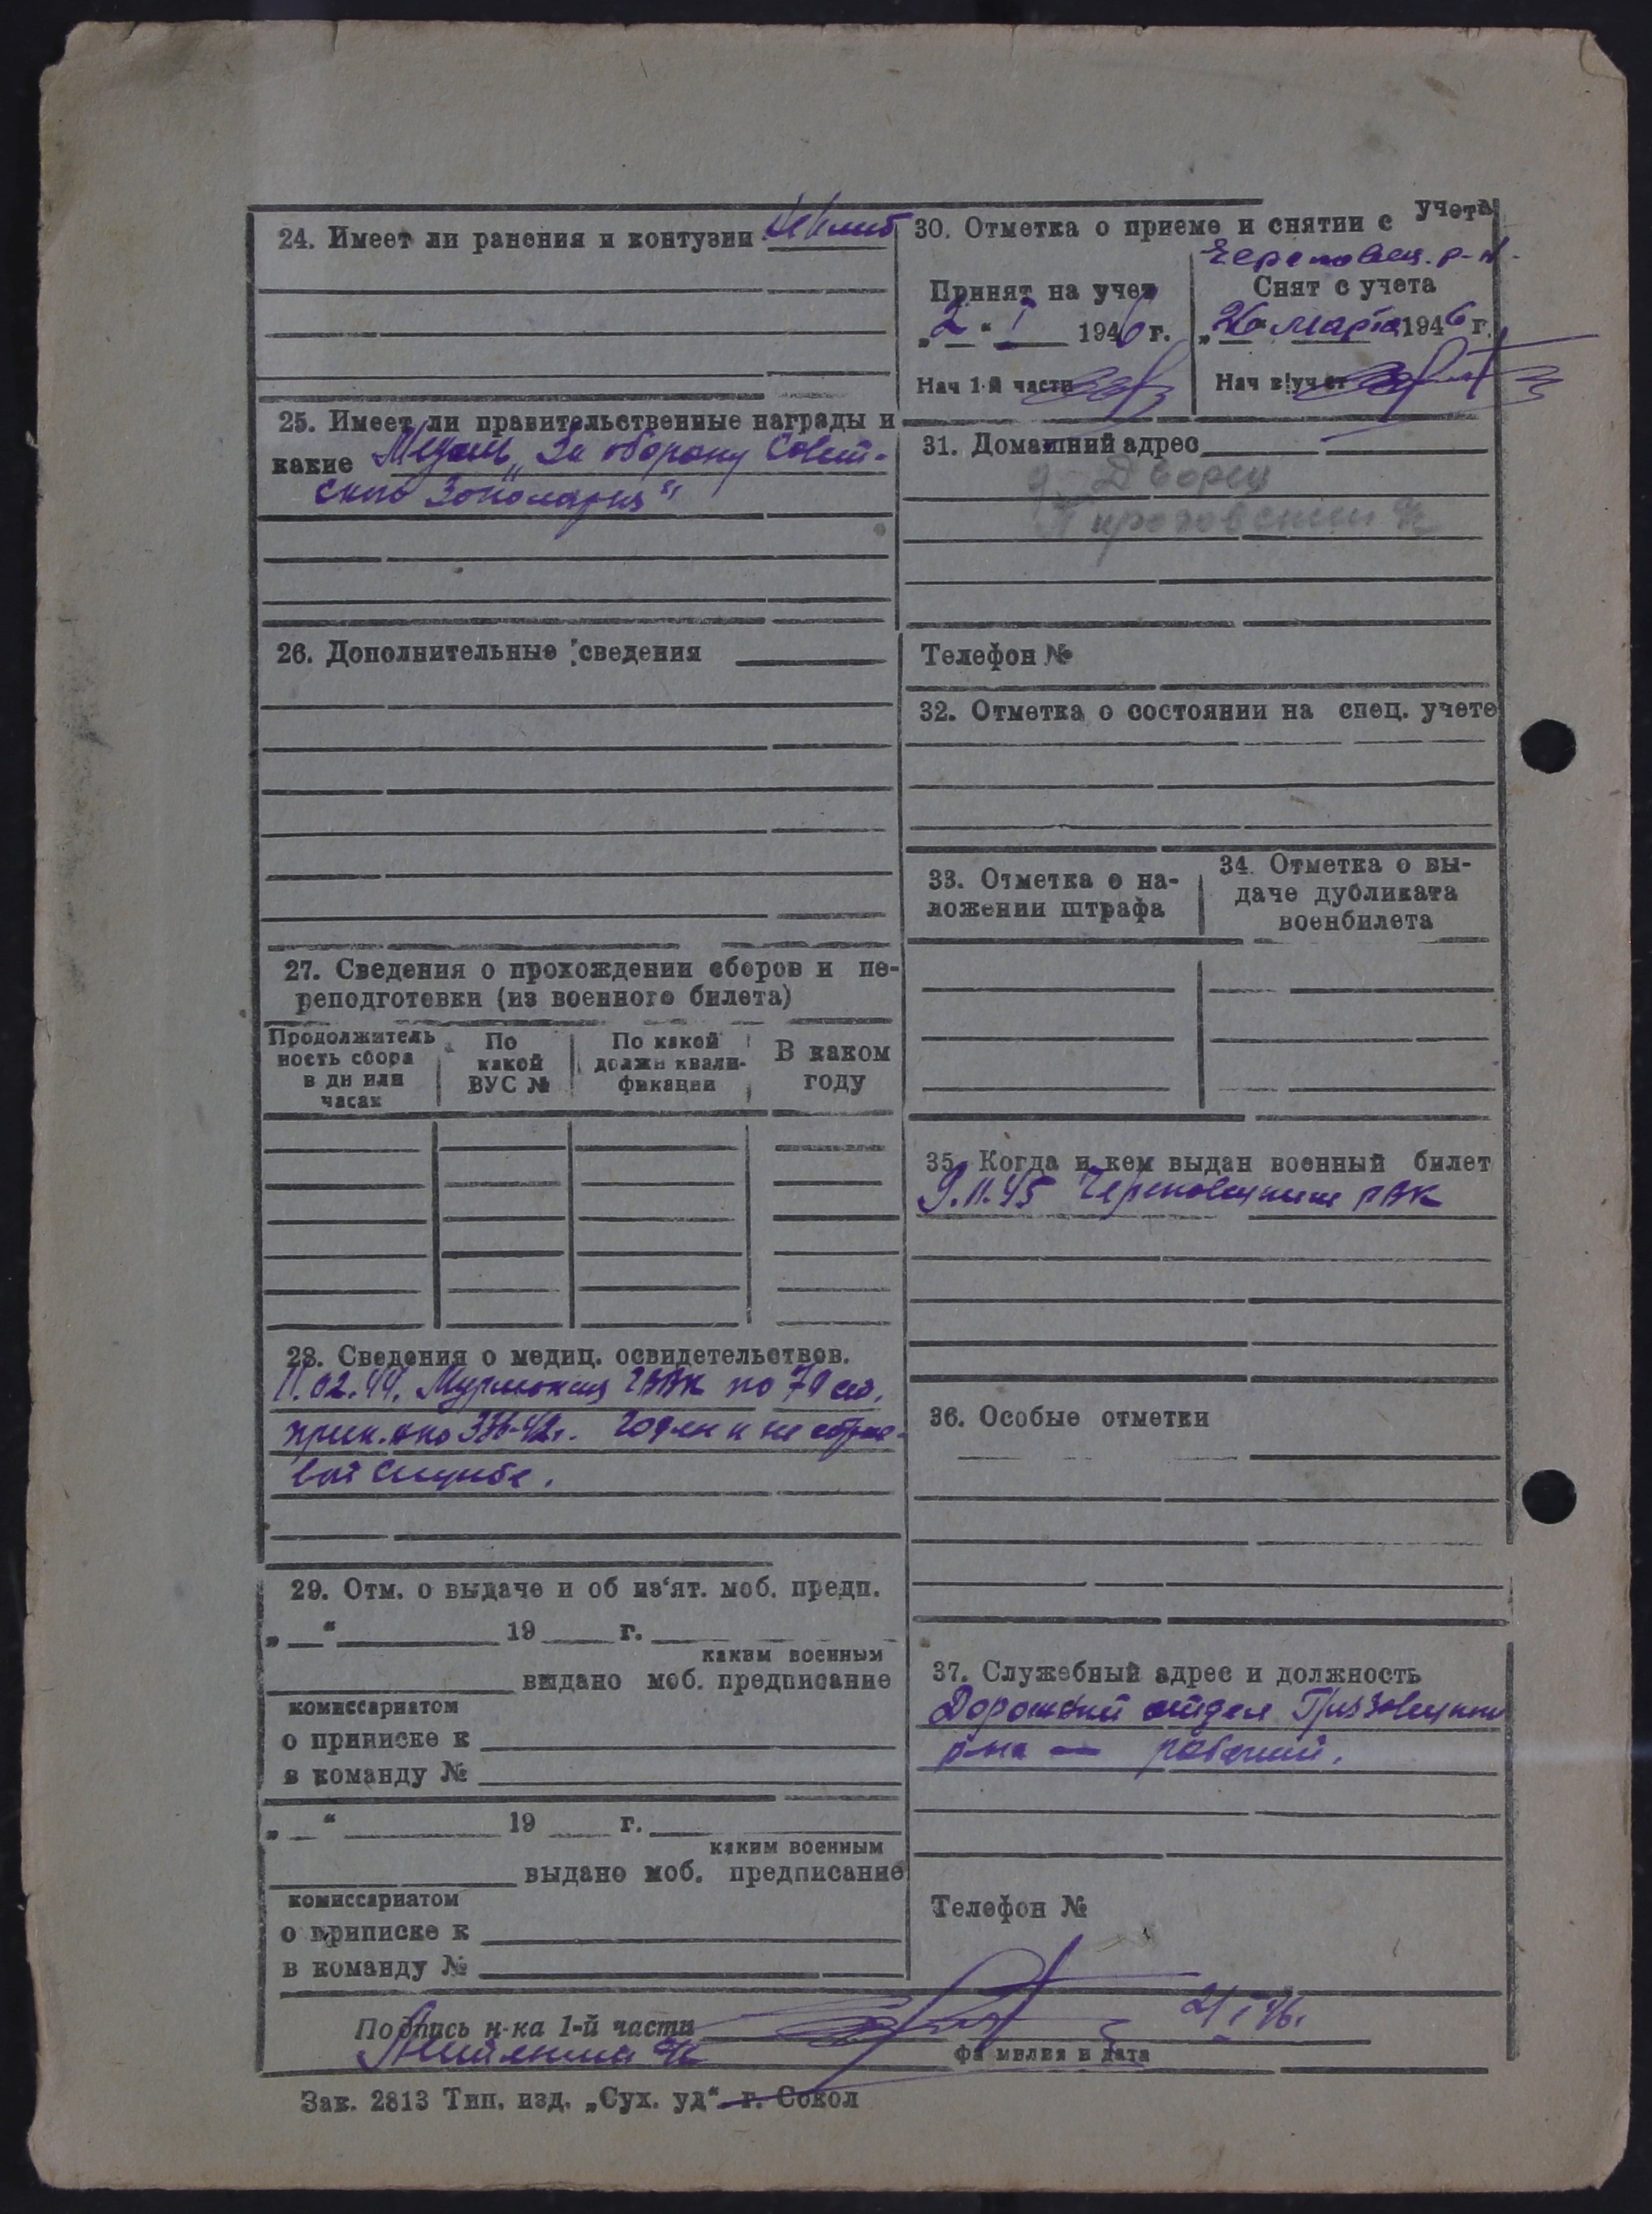 24. Имеет ли ранения и контузии
25. Имеет ли правительственные награды и
какие Медаль „За оборону Совет-
ского Заполярия"
26. Дополнительные сведения
27. Сведения о прохождении сборов и пе-
реподготовки (из военного билета)
Продолжитель
ность сбора
в дн или
часах
По
какой
ВУС №
По какой
должн квали-
фикации
В каком
году
28. Сведения о медиц. освидетельствов.
11.02.44. по 79 ст.
прик. нко 336-42г. Годен к не строе-
вой службе.
29. Отм. о выдаче и об из'ят. моб. предп.
„ " 19 г.
каким военным
выдано моб. предписание
комиссариатом
о приписке к
в команду №
„ " 19 г.
каким военным
выдано моб. предписание
комиссариатом
о приписке к
в команду №
30. Отметка о приеме и снятии с учета
Череповец. р-н.
Принят на учет
„2" I 1946 г.
Нач 1-й части
Снят с учета
„26" марта 1946 г.
Нач в/учет
31. Домашний адрес
д. Дворец
Телефон №
32. Отметка о состоянии на спец. учете
33. Отметка о на-
ложении штрафа
34. Отметка о вы-
даче дубликата
военбилета
35. Когда и кем выдан военный билет
9.11.45 Череповецким РВК
36. Особые отметки
37. Служебный адрес и должность
Дорожный отдел Грязовецкого
р-на — рабочий.
Телефон №
Подпись н-ка 1-й части
2/I 46г.
фамилия и дата
Зак. 2813 Тип. изд. „Сух. уд" г. Сокол